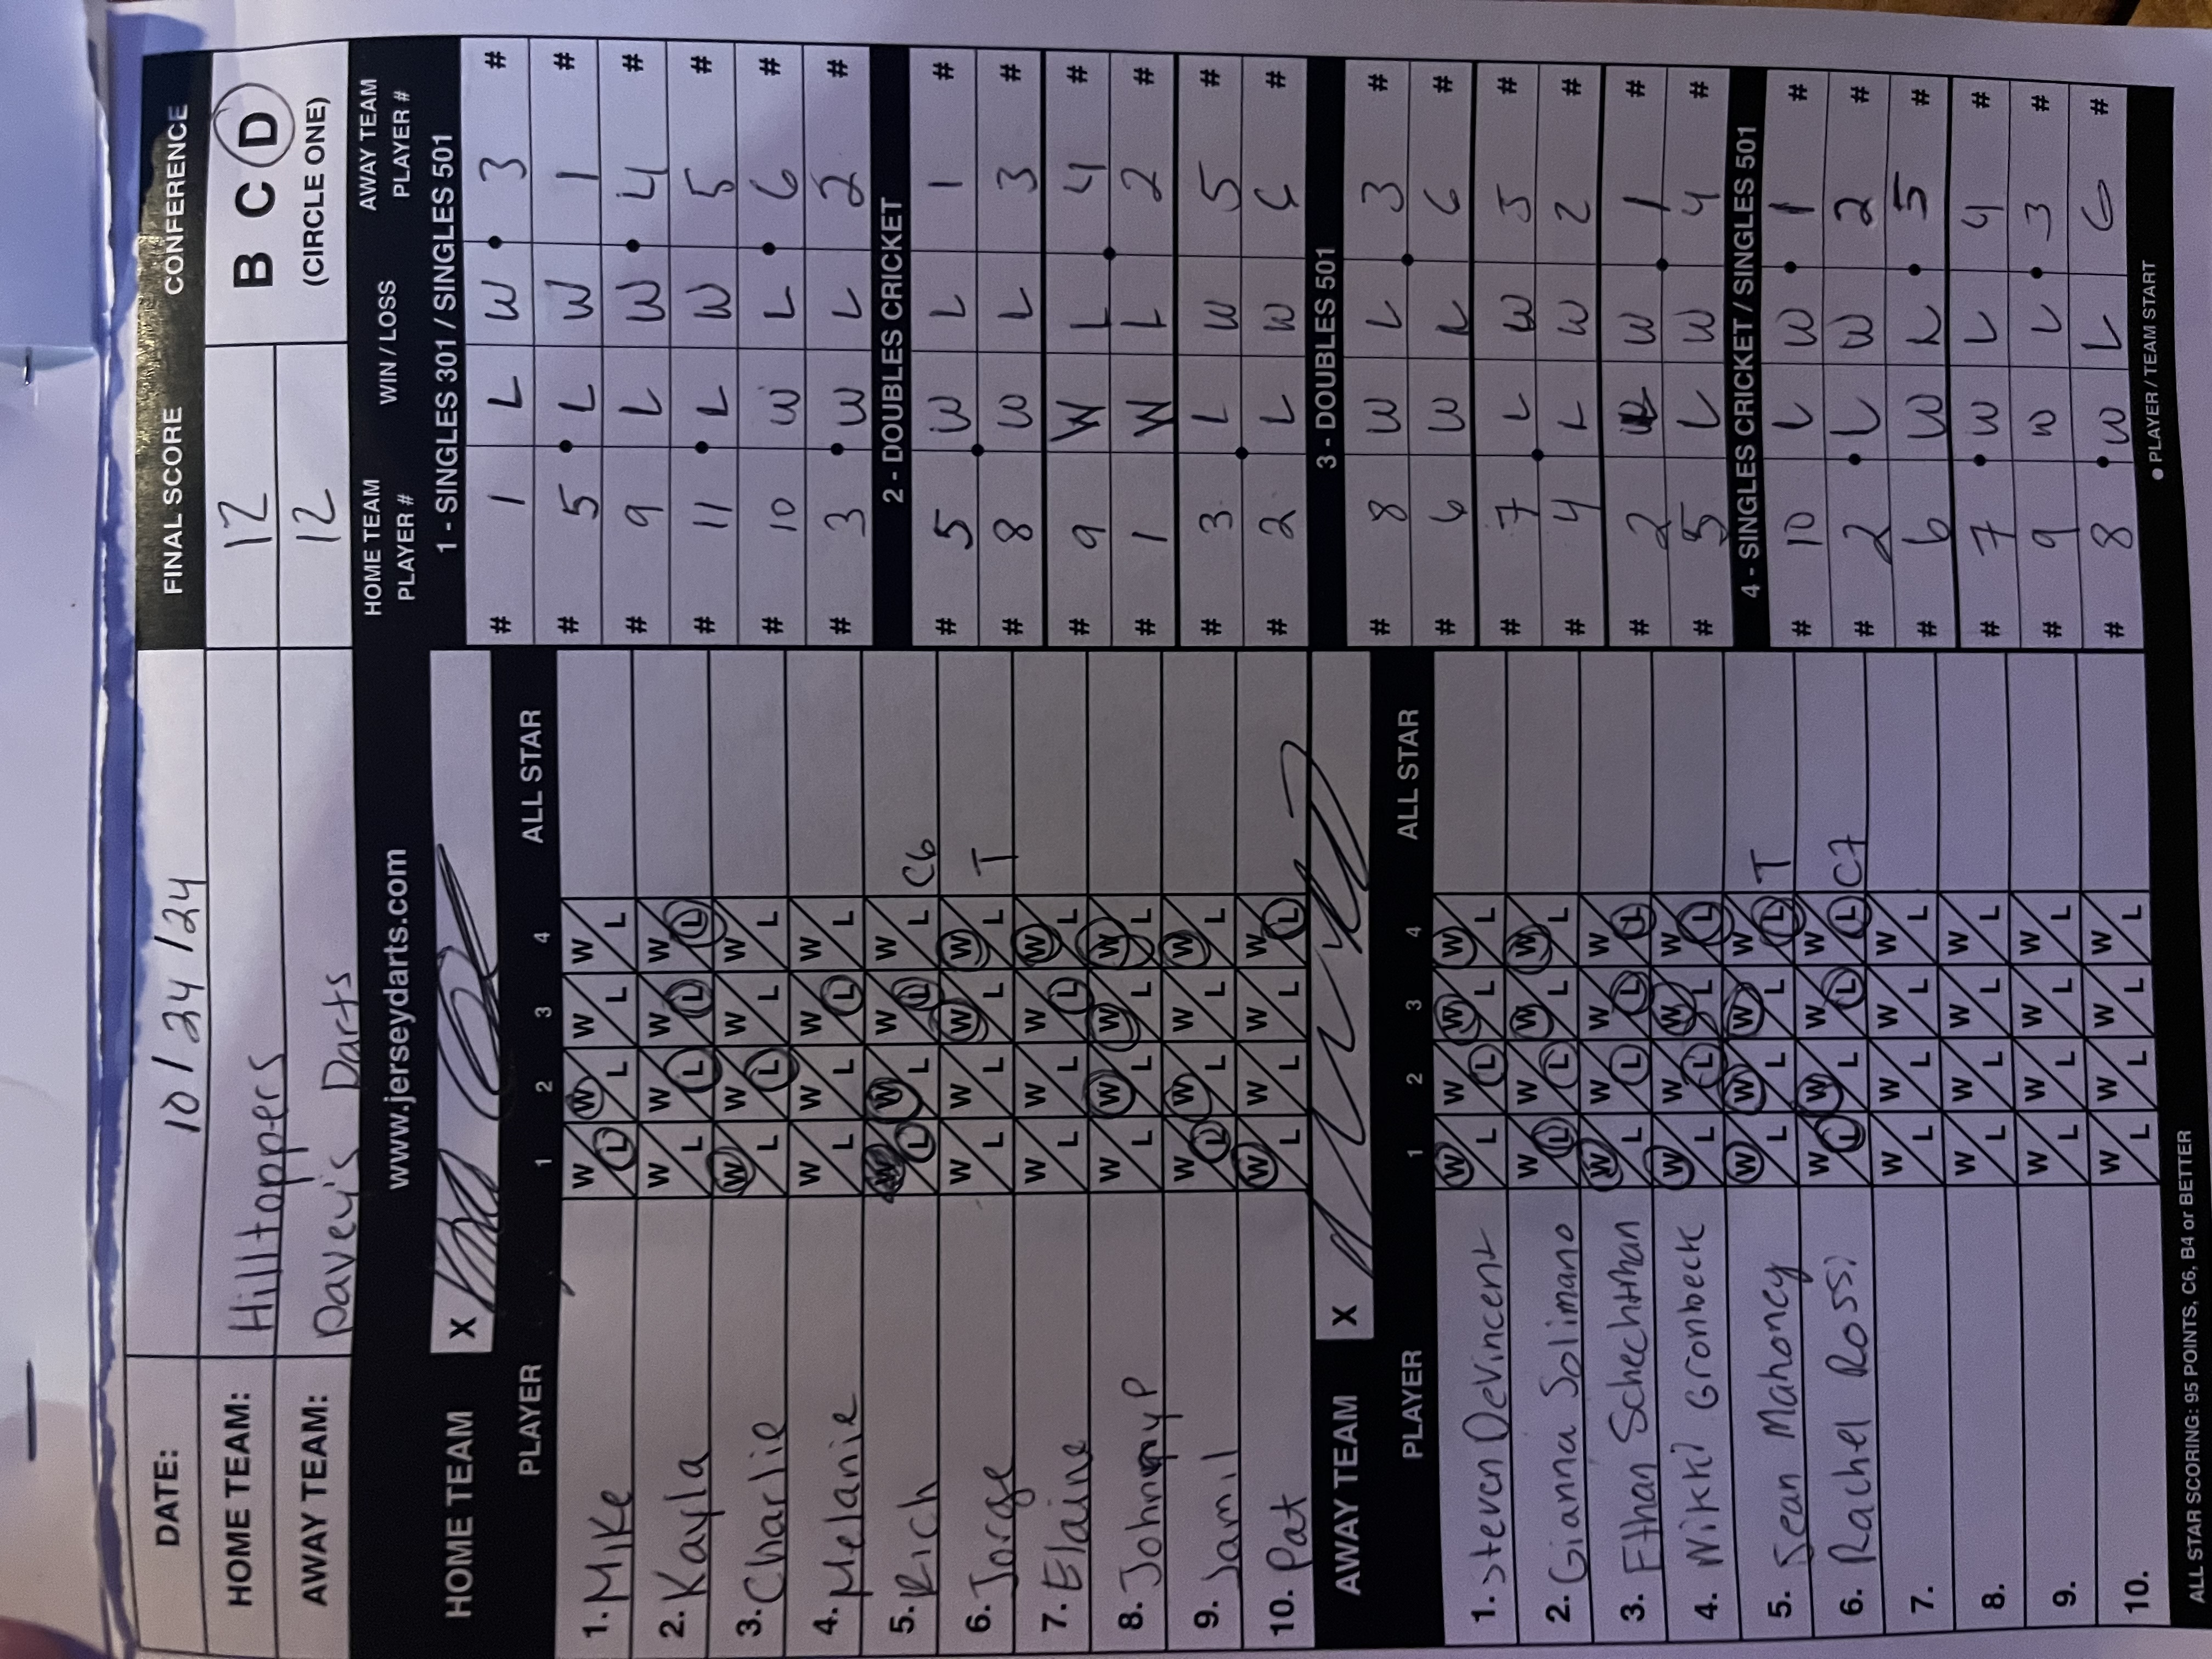 DATE: 10/24/24 FINAL SCORE CONFERENCE
HOME TEAM: Hilltoppers 12 B C D
AWAY TEAM: Davey's Darts 12 (CIRCLE ONE)
www.jerseydarts.com
HOME TEAM X
PLAYER 1 2 3 4 ALL STAR
1. Mike W L W L W L W L
2. Kayla W L W L W L W L
3. Charlie W L W L W L W L
4. Melanie W L W L W L W L
5. Rich W L W L W L W L C6
6. Jorge W L W L W L W L T
7. Elaine W L W L W L W L
8. Johnny P W L W L W L W L
9. Jamil W L W L W L W L
10. Pat W L W L W L W L
AWAY TEAM X
PLAYER 1 2 3 4 ALL STAR
1. Steven DeVincent W L W L W L W L
2. Gianna Solimano W L W L W L W L
3. Ethan Schechtman W L W L W L W L
4. Nikki Gronbeck W L W L W L W L
5. Sean Mahoney W L W L W L W L T
6. Rachel Rossi W L W L W L W L C7
7. W L W L W L W L
8. W L W L W L W L
9. W L W L W L W L
10. W L W L W L W L
HOME TEAM PLAYER # WIN / LOSS AWAY TEAM PLAYER #
1 - SINGLES 301 / SINGLES 501
# 1 L W 3 #
# 5 L W 1 #
# 9 L W 4 #
# 11 L W 5 #
# 10 W L 6 #
# 3 W L 2 #
2 - DOUBLES CRICKET
# 5 W L 1 #
# 8 W L 3 #
# 9 W L 4 #
# 1 W L 2 #
# 3 L W 5 #
# 2 L W 6 #
3 - DOUBLES 501
# 8 W L 3 #
# 6 W L 6 #
# 7 L W 5 #
# 4 L W 2 #
# 2 L W 1 #
# 5 L W 4 #
4 - SINGLES CRICKET / SINGLES 501
# 10 L W 1 #
# 2 L W 2 #
# 6 W L 5 #
# 7 W L 4 #
# 9 W L 3 #
# 8 W L 6 #
● PLAYER / TEAM START
ALL STAR SCORING: 95 POINTS, C6, B4 or BETTER